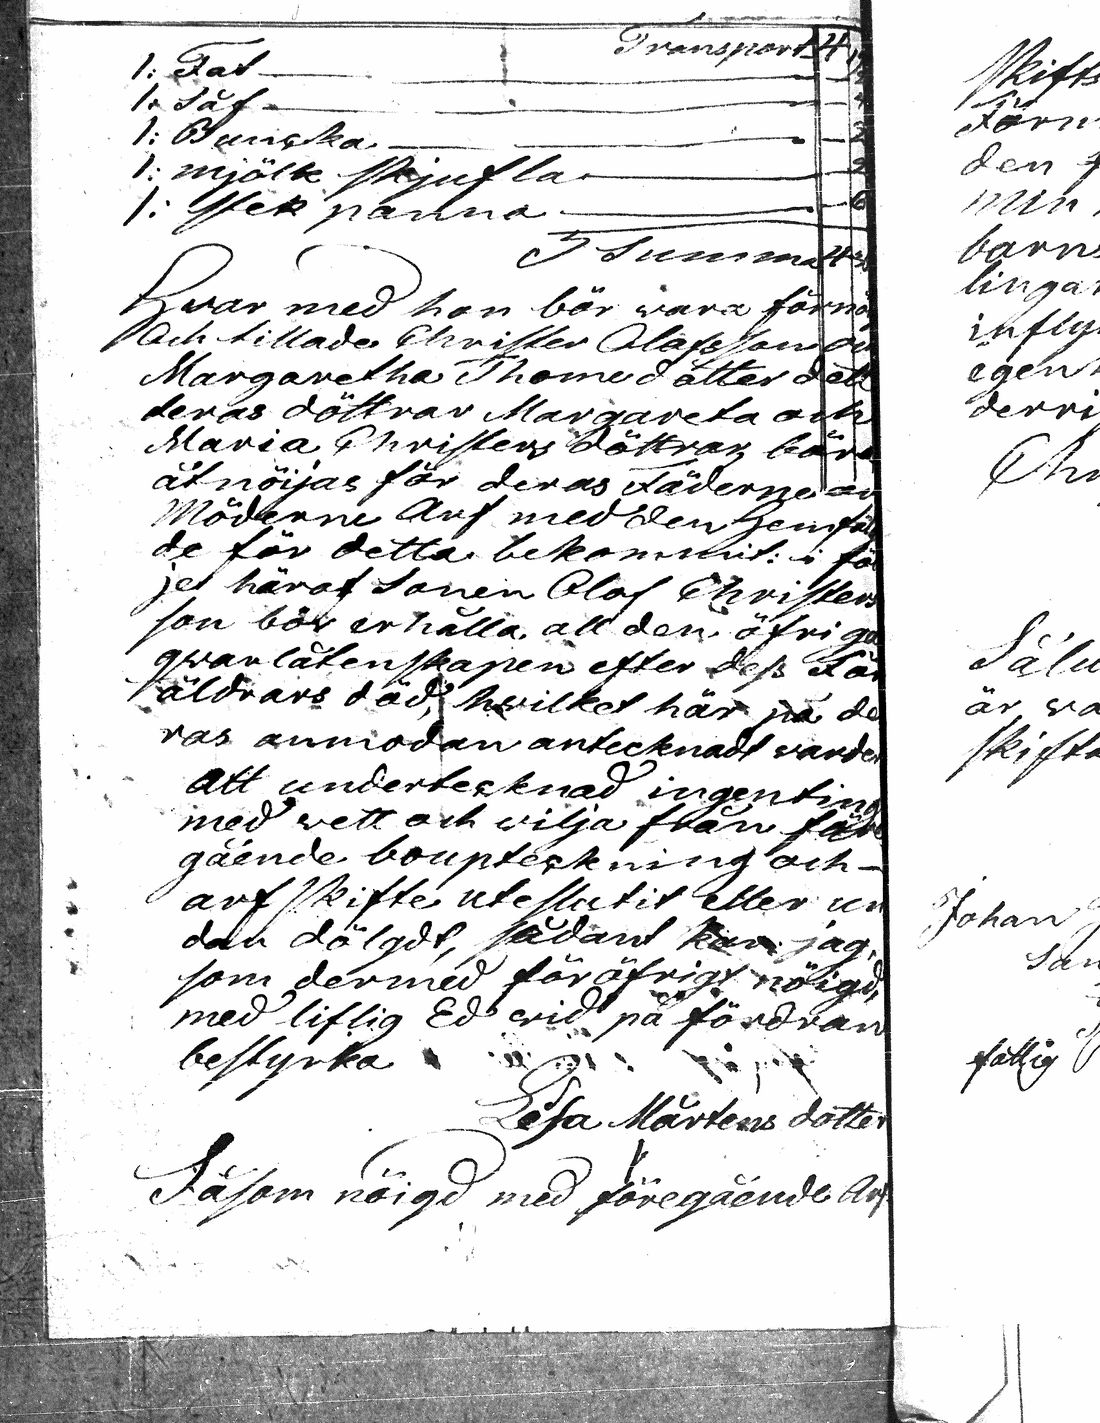 Transport 4
1: Fat
1: Såf
1: Bunska
1: mjölk skjufla 2
1: stek panna 6
Summa 4
Hvar med hon bör wara förnög
Och tillade Christer Olafsson och
Margaretha Thomedotter det
deras döttrar Margareta och
Maria Christers döttrar böra
åtnöijas för deras Fäderne och
Möderne Arf med den Hemföl
de för detta bekommit: i föl
je häraf Sonen Olof Christers
son bör erhålla all den öfriga
qwarlåtenskapen efter dess För
äldrars död, hwilket här på de
ras anmodan antecknadt warder
Att undertecknad ingenting
med wett och wilja från före
gående boupteckning och
arfskifte uteslutit eller un
dan dölgdt, sådant kan jag,
som dermed föröfrigt nöigd,
med liflig Ed wid påfordran
bestyrka
Lisa Mårtens dotter
Såsom nöigd med föregående Arf
skifts
den
min
barns
lingar
inflyt
egen
derri
Chr
är wa
skifta
Johan
fattig